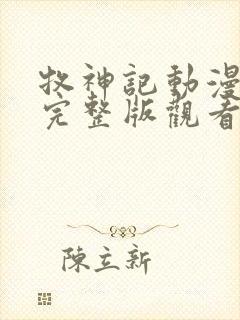 牧神記動漫
完整版觀看
陳立新